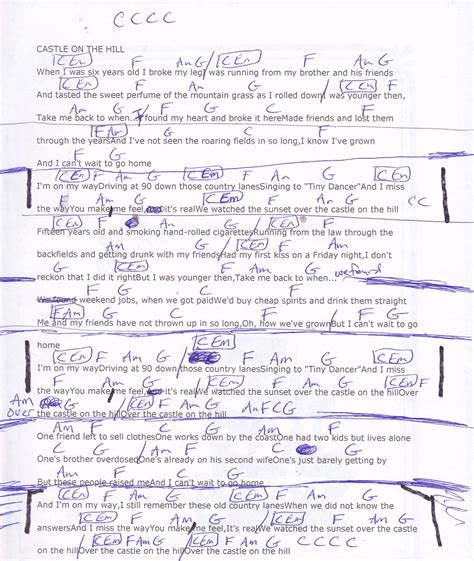 C C C C
CASTLE ON THE HILL
CEm F Am G / CEm F G
When I was six years old I broke my leg was running from my brother and his friends
Am G F
And tasted the sweet perfume of the mountain grass as I rolled down was younger then,
F Am G / F C G
Take me back to when... found my heart and broke it hereMade friends and lost them
FAm G
through the yearsAnd I've not seen the roaring fields in so long,I know I've grown
F G
And I can't wait to go home
CEm F Am G / CEm F Am G / CEm
I'm on my wayDriving at 90 down those country lanesSinging to "Tiny Dancer"And I miss
F Am G / CEm F G C C
the wayYou make me feel, it's realWe watched the sunset over the castle on the hill
CEm F Am G / CEm
Fifteen years old and smoking hand-rolled cigarettesRunning from the law through the
F Am G F
backfields and getting drunk with my friendsHad my first kiss on a Friday night,I don't
CEm F Am G we found
reckon that I did it rightBut I was younger then,Take me back to when...
F C G F C G
We found weekend jobs, when we got paidWe'd buy cheap spirits and drink them straight
FAm G F G
Me and my friends have not thrown up in so long,Oh, how we've grownBut I can't wait to go
home
CEm F Am G / CEm F Am G CEm
I'm on my wayDriving at 90 down those country lanesSinging to "Tiny Dancer"And I miss
F Am G CEm F Am G CEm F
the wayYou make me feel, it's realWe watched the sunset over the castle on the hillOver
Am G CEm F Am G Am F C G
over the castle on the hillOver the castle on the hill
Am F C G Am F
One friend left to sell clothesOne works down by the coastOne had two kids but lives alone
C G / Am F C G
One's brother overdosedOne's already on his second wifeOne's just barely getting by
F G
But these people raised meAnd I can't wait to go home
CEm F Am G CEm F Am G
And I'm on my way,I still remember these old country lanesWhen we did not know the
CEm F Am G CEm F Am G
answersAnd I miss the wayYou make me feel,It's realWe watched the sunset over the castle
CEm F Am G CEm F Am G C C C C
on the hillOver the castle on the hillOver the castle on the hill